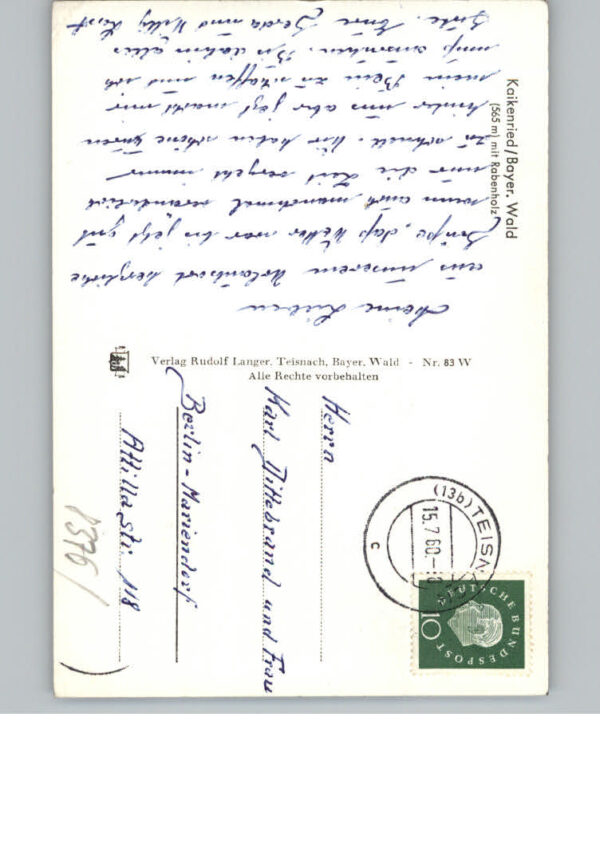 Kaikenried/Bayer. Wald
(565 m) mit Rabenholz
Meine Lieben
aus unserem Urlaubsort herzliche
Grüße, daß Wetter war bis jetzt gut
wenn auch manchmal veränderlich
nur die Zeit vergeht immer
zu schnell. Wir haben schöne Touren
hinter uns aber jetzt macht mir
mein Bein zu schaffen und ich
muß ausruhen. Bis dahin alles
Gute. Eure Gerda und Willy
Verlag Rudolf Langer, Teisnach, Bayer. Wald - Nr. 83 W
Alle Rechte vorbehalten
(13b) TEISN
15.7.60
c
DEUTSCHE BUNDESPOST
10
Herrn
Karl Hillebrand und Frau
Berlin-Mariendorf
Attilastr. 118
1376/